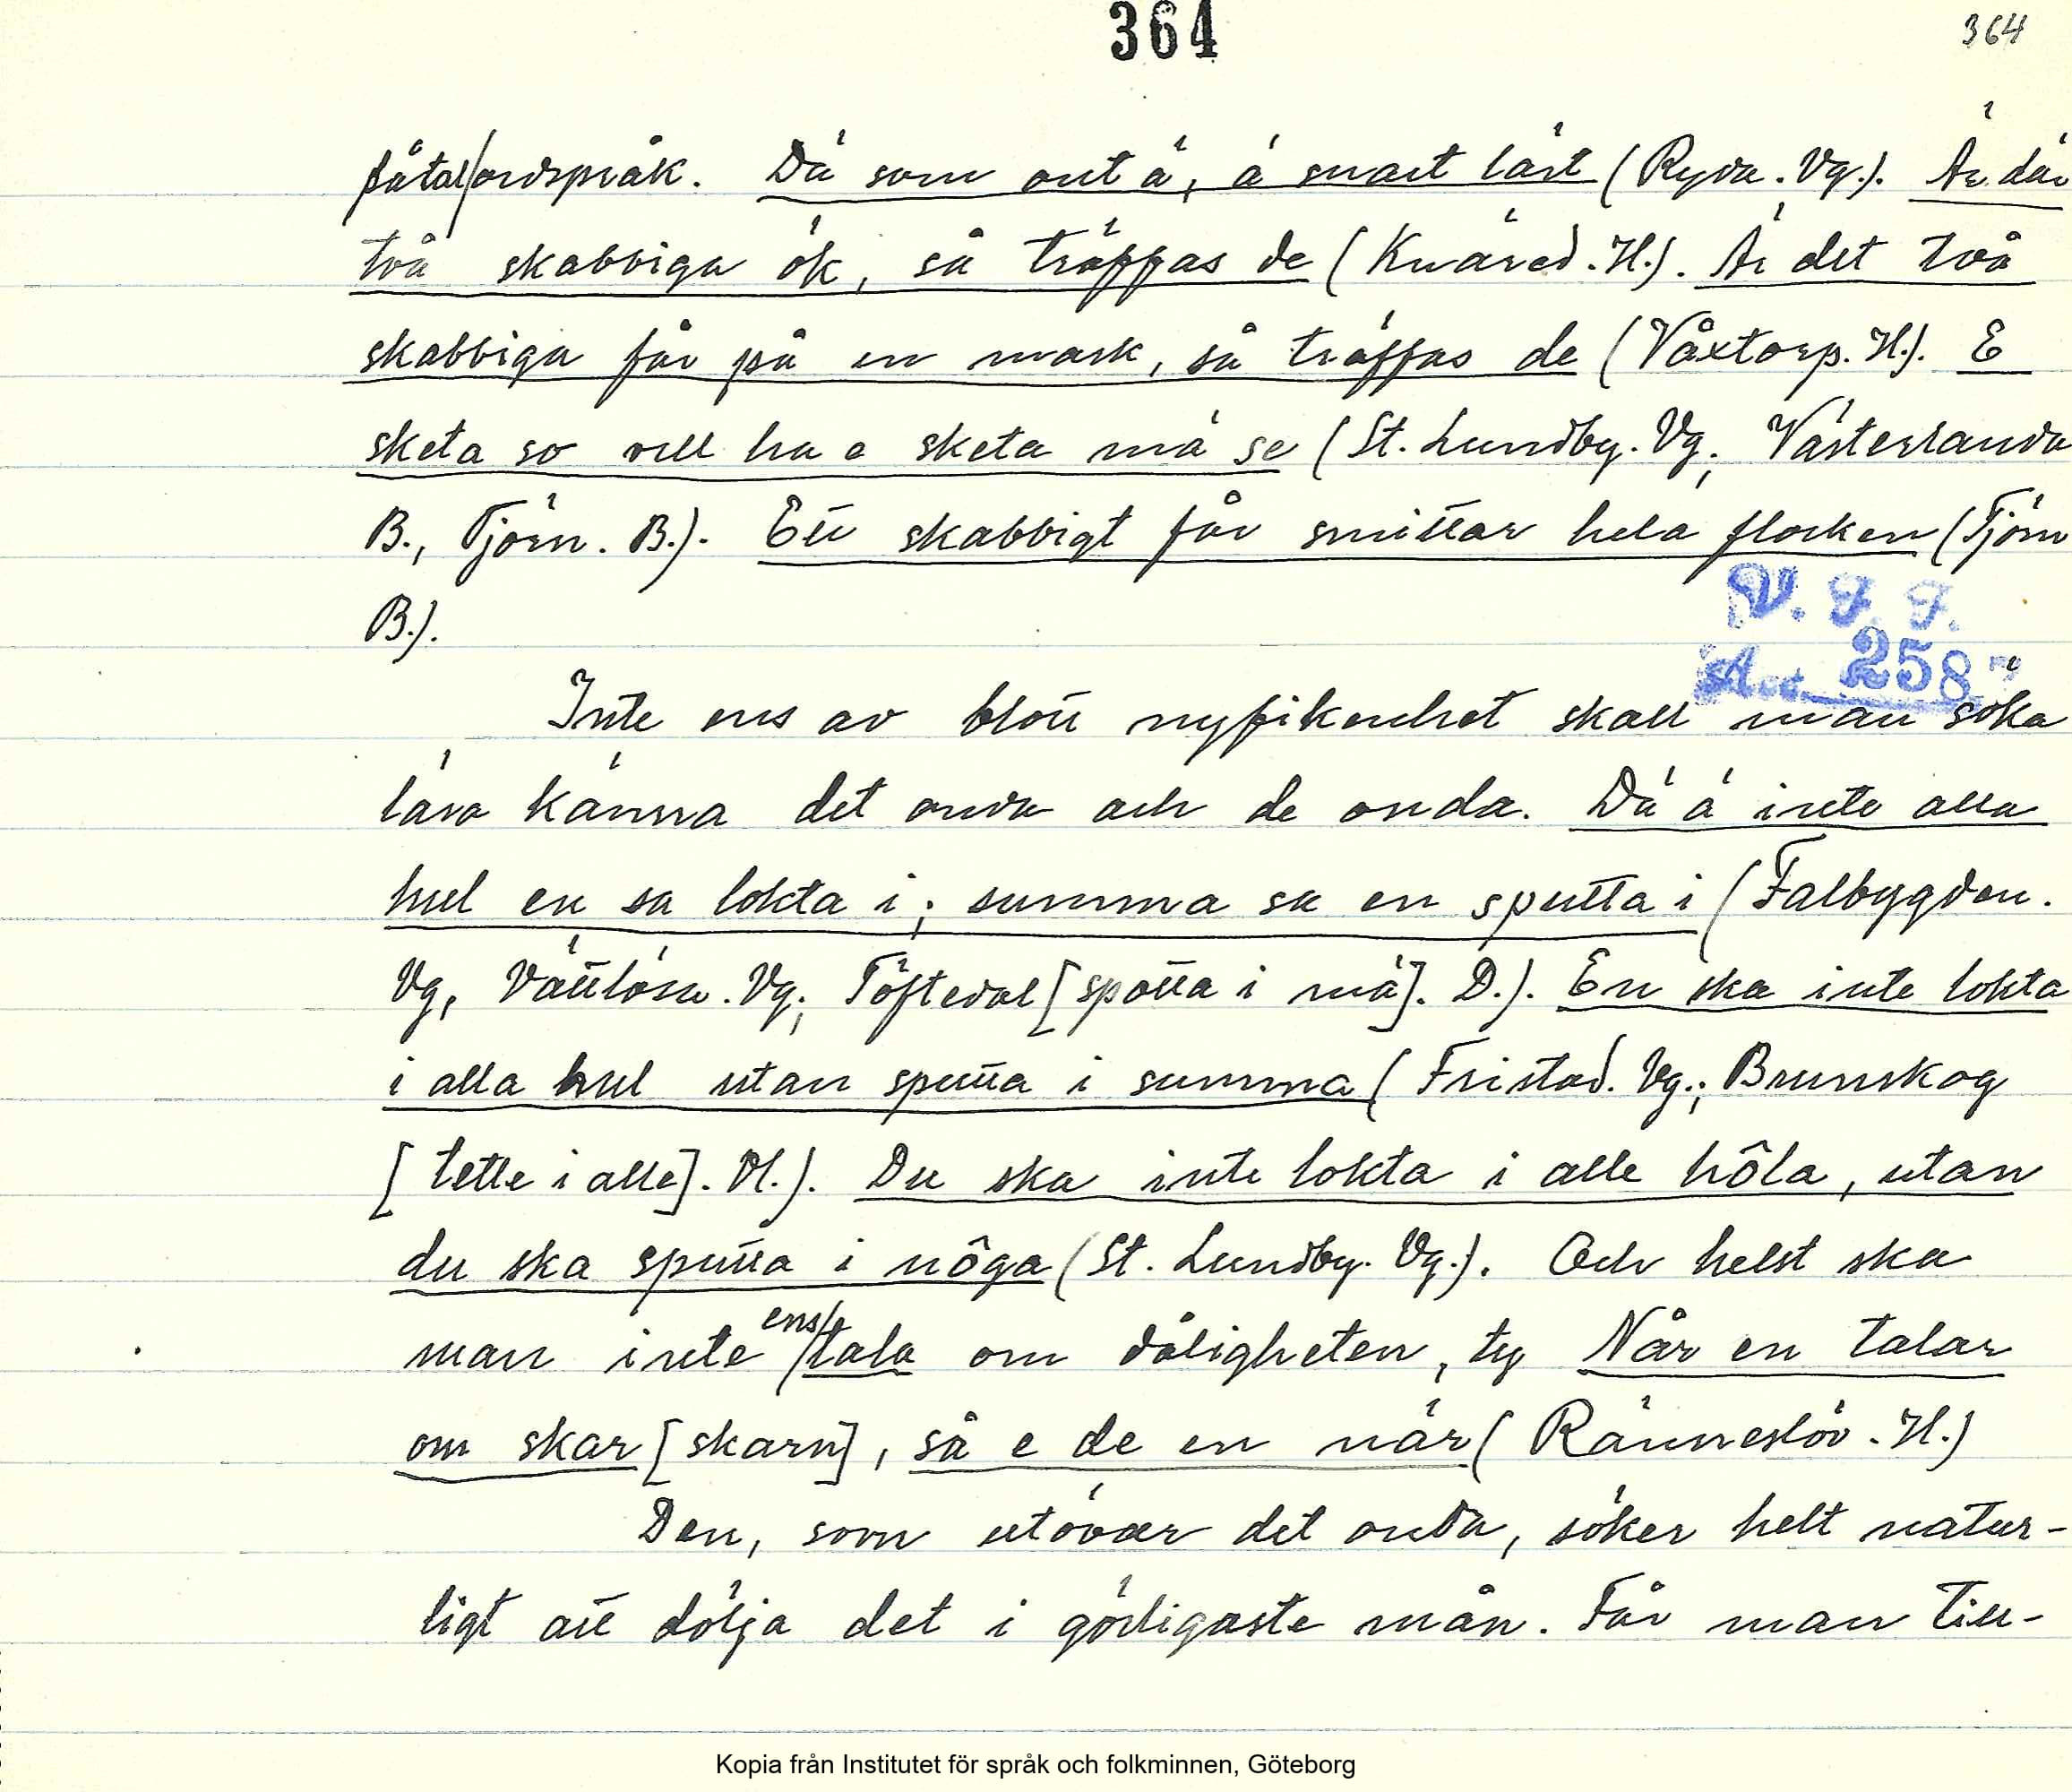 364
364
fåtal ordspråk. Dä som ont ä, ä snart lärt (Ryda. Vg.). Är där
två skabbiga ök, så träffas de (Knäred. H.). Är det två
skabbiga får på en mark, så träffas de (Våxtorp. H.). E
sketa so vell ha e sketa mä se (St. Lundby. Vg; Västerlanda
B., Tjörn. B.). Ett skabbigt får smittar hela flocken (Tjörn
B.).
V. F. F.
Acc. 258
Inte ens av blott nyfikenhet skall man söka
lära känna det onda och de onda. Dä ä inte alla
hul en sa lokta i; summa sa en sputta i (Falbygden.
Vg, Vättlösa. Vg; Töftedal [spotta i mä]. D.). En ska inte lokta
i alla hul utan sputta i summa (Fristad. Vg.; Brunskog
[tette i alle]. Vl.). Du ska inte lokta i alle hôla, utan
du ska sputta i nôga (St. Lundby. Vg.). Och helst ska
man inte ens tala om dåligheten, ty Når en talar
om skar [skarn], så e de en när (Ränneslöv. H.)
Den, som utövar det onda, söker helt natur-
ligt att dölja det i görligaste mån. Får man till-
Kopia från Institutet för språk och folkminnen, Göteborg